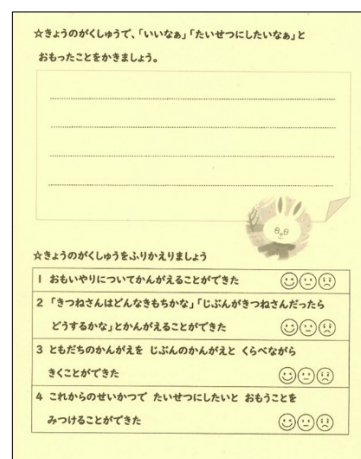 ☆きょうのがくしゅうで、「いいなぁ」「たいせつにしたいなぁ」と
おもったことをかきましょう。
☆きょうのがくしゅうをふりかえりましょう
1 おもいやりについてかんがえることができた
2 「きつねさんはどんなきもちかな」「じぶんがきつねさんだったら
どうするかな」とかんがえることができた
3 ともだちのかんがえを じぶんのかんがえと くらべながら
きくことができた
4 これからのせいかつで たいせつにしたいと おもうことを
みつけることができた